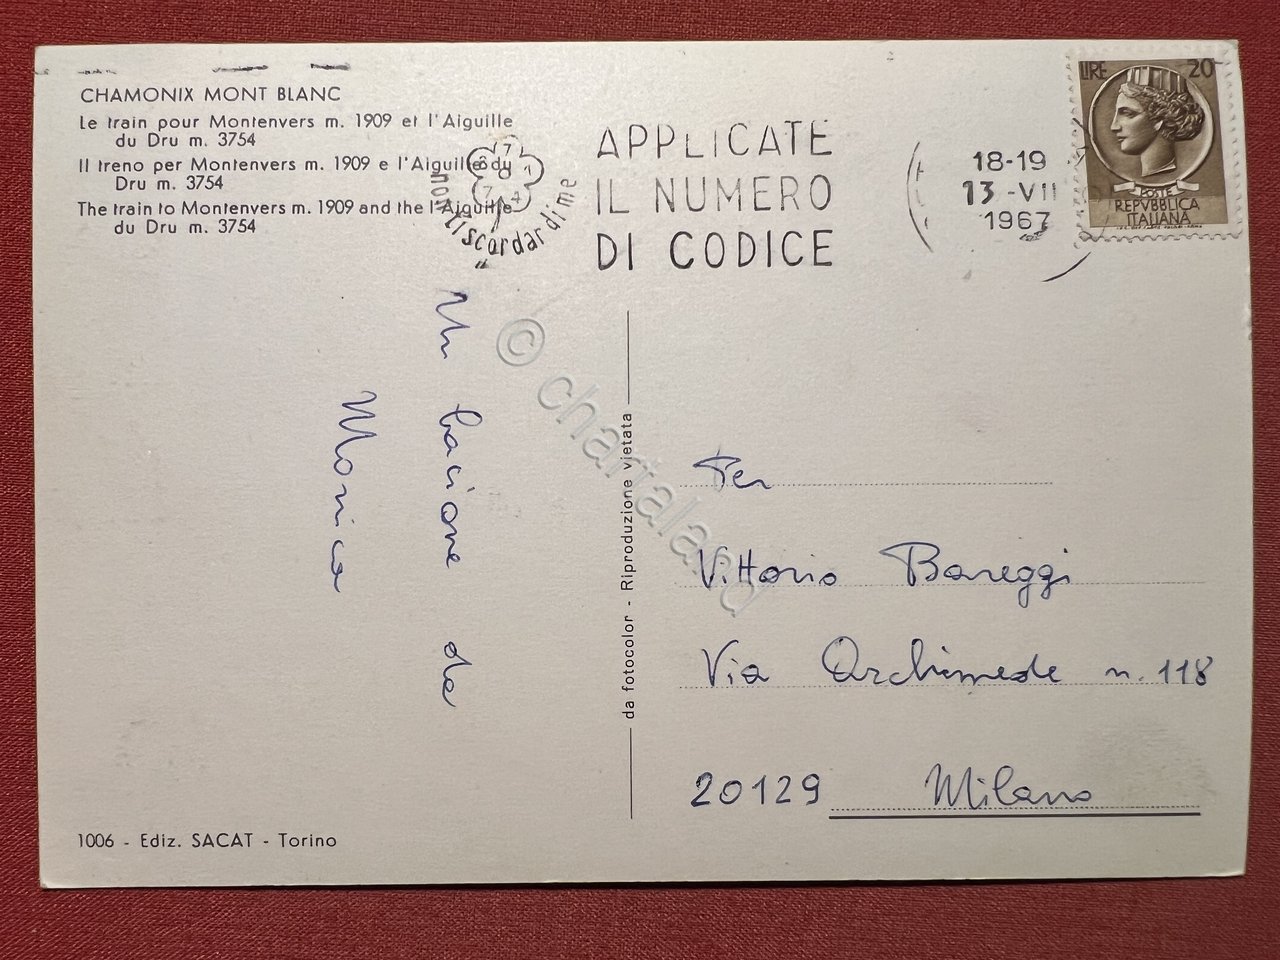 CHAMONIX MONT BLANC
Le train pour Montenvers m. 1909 et l'Aiguille
du Dru m. 3754
Il treno per Montenvers m. 1909 e l'Aiguille du
Dru m. 3754
The train to Montenvers m. 1909 and the l'Aiguille
du Dru m. 3754
nontiscordardime
APPLICATE
IL NUMERO
DI CODICE
18-19
13-VII
1967
LIRE 20
POSTE
REPVBBLICA
ITALIANA
Un bacione da
Monica
© chartaland
da fotocolor - Riproduzione vietata
Per
Vittorio Bareggi
Via Archimede n. 118
20129 Milano
1006 - Ediz. SACAT - Torino